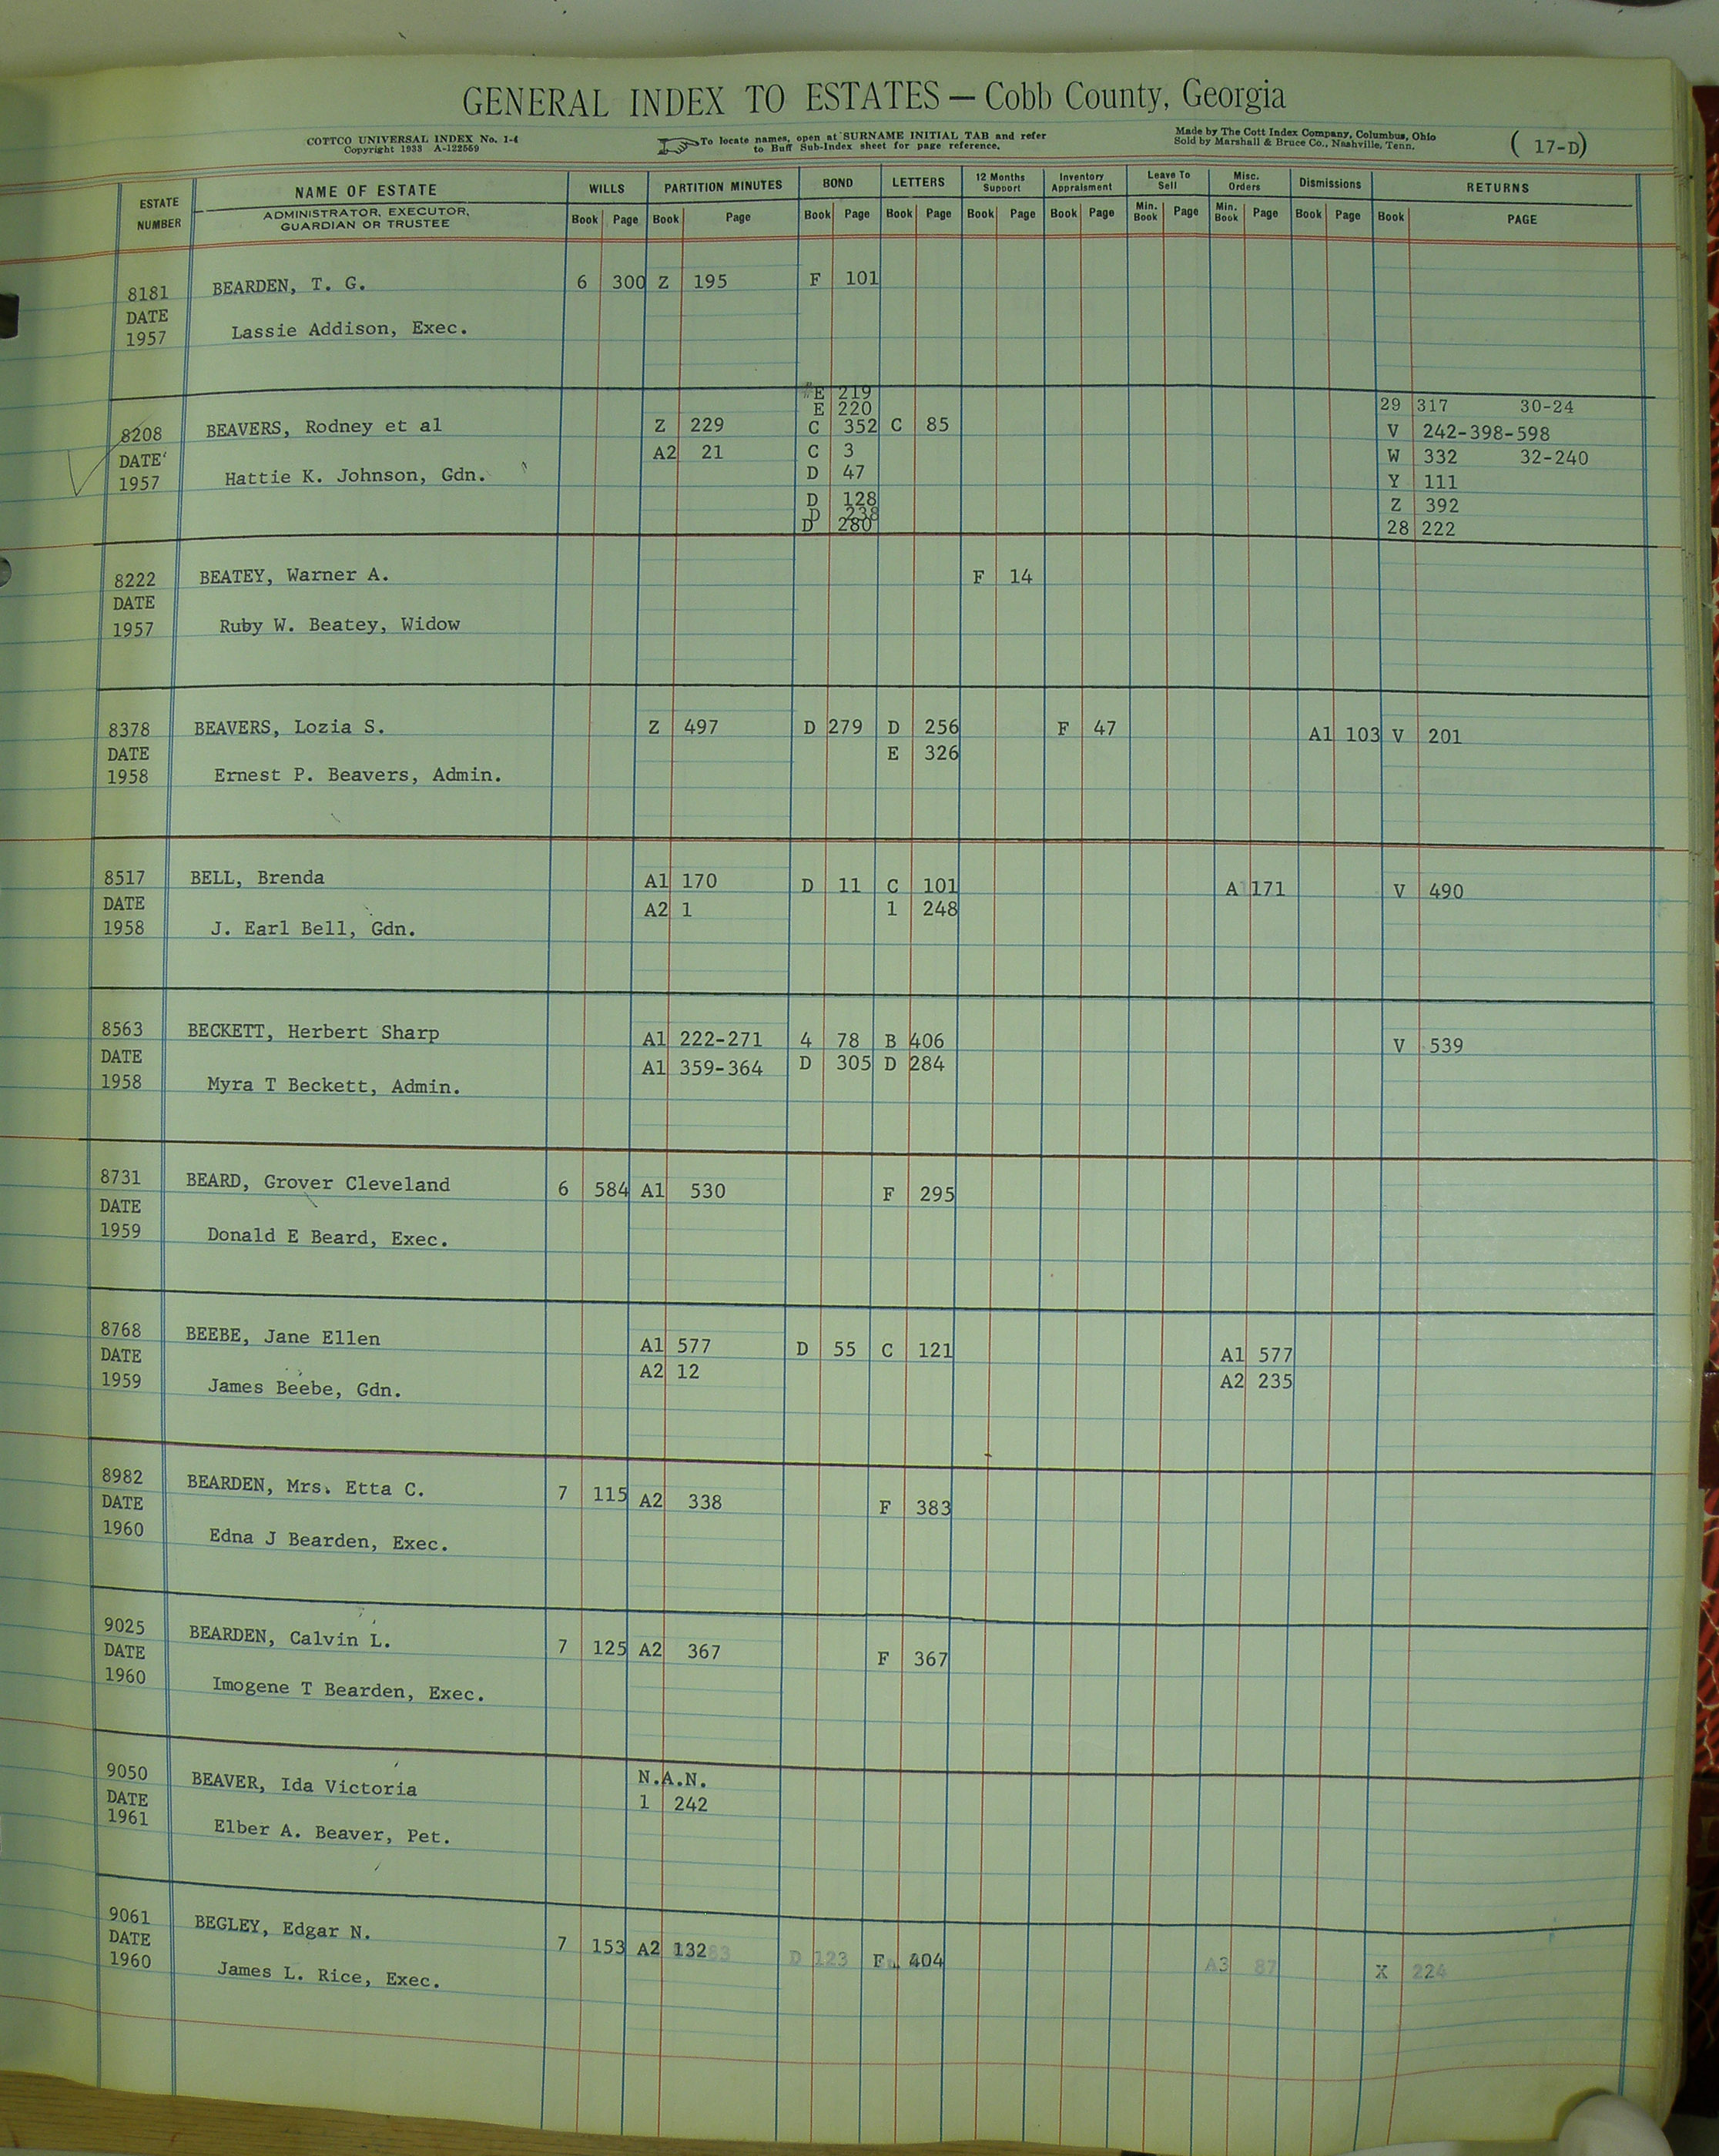 GENERAL INDEX TO ESTATES — Cobb County, Georgia
COTTCO UNIVERSAL INDEX No. 1-4
Copyright 1933 A-122569
To locate names, open at SURNAME INITIAL TAB and refer
to Buff Sub-Index sheet for page reference.
Made by The Cott Index Company, Columbus, Ohio
Sold by Marshall & Bruce Co., Nashville, Tenn.
( 17-D)
ESTATE NUMBER NAME OF ESTATE WILLS PARTITION MINUTES BOND LETTERS 12 Months Support Inventory Appraisment Leave To Sell Misc. Orders Dismissions RETURNS
ADMINISTRATOR, EXECUTOR, GUARDIAN OR TRUSTEE Book Page Book Page Book Page Book Page Book Page Book Page Min. Book Page Min. Book Page Book Page Book PAGE
8181 BEARDEN, T. G. 6 300 Z 195 F 101
DATE
1957 Lassie Addison, Exec.
E 219 29 317 30-24
E 220
8208 BEAVERS, Rodney et al Z 229 C 352 C 85 V 242-398-598
DATE A2 21 C 3 W 332 32-240
1957 Hattie K. Johnson, Gdn. D 47 Y 111
D 128 Z 392
D 238
D 280 28 222
8222 BEATEY, Warner A. F 14
DATE
1957 Ruby W. Beatey, Widow
8378 BEAVERS, Lozia S. Z 497 D 279 D 256 F 47 A1 103 V 201
DATE E 326
1958 Ernest P. Beavers, Admin.
8517 BELL, Brenda A1 170 D 11 C 101 A 171 V 490
DATE A2 1 1 248
1958 J. Earl Bell, Gdn.
8563 BECKETT, Herbert Sharp A1 222-271 4 78 B 406 V 539
DATE A1 359-364 D 305 D 284
1958 Myra T Beckett, Admin.
8731 BEARD, Grover Cleveland 6 584 A1 530 F 295
DATE
1959 Donald E Beard, Exec.
8768 BEEBE, Jane Ellen A1 577 D 55 C 121 A1 577
DATE A2 12 A2 235
1959 James Beebe, Gdn.
8982 BEARDEN, Mrs. Etta C. 7 115 A2 338 F 383
DATE
1960 Edna J Bearden, Exec.
9025 BEARDEN, Calvin L. 7 125 A2 367 F 367
DATE
1960 Imogene T Bearden, Exec.
9050 BEAVER, Ida Victoria N.A.N.
DATE 1 242
1961 Elber A. Beaver, Pet.
9061 BEGLEY, Edgar N. 7 153 A2 132 D 123 F 404 A3 87 X 224
DATE
1960 James L. Rice, Exec.